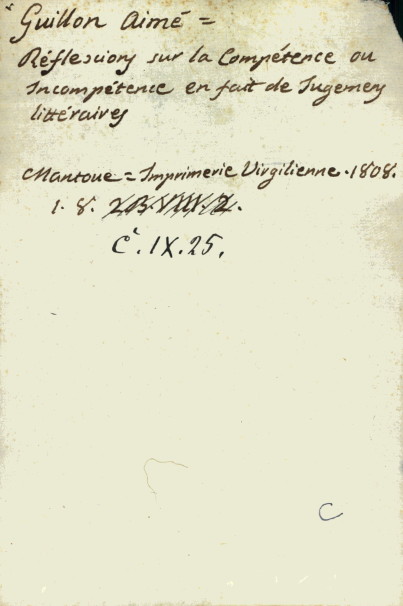 Guillon Aimé =
Réflexions sur la Compétence ou
Incompétence en fait de Jugemens
littéraires
Mantoue = Imprimerie Virgilienne. 1808.
1. 8.
C. IX. 25.
C